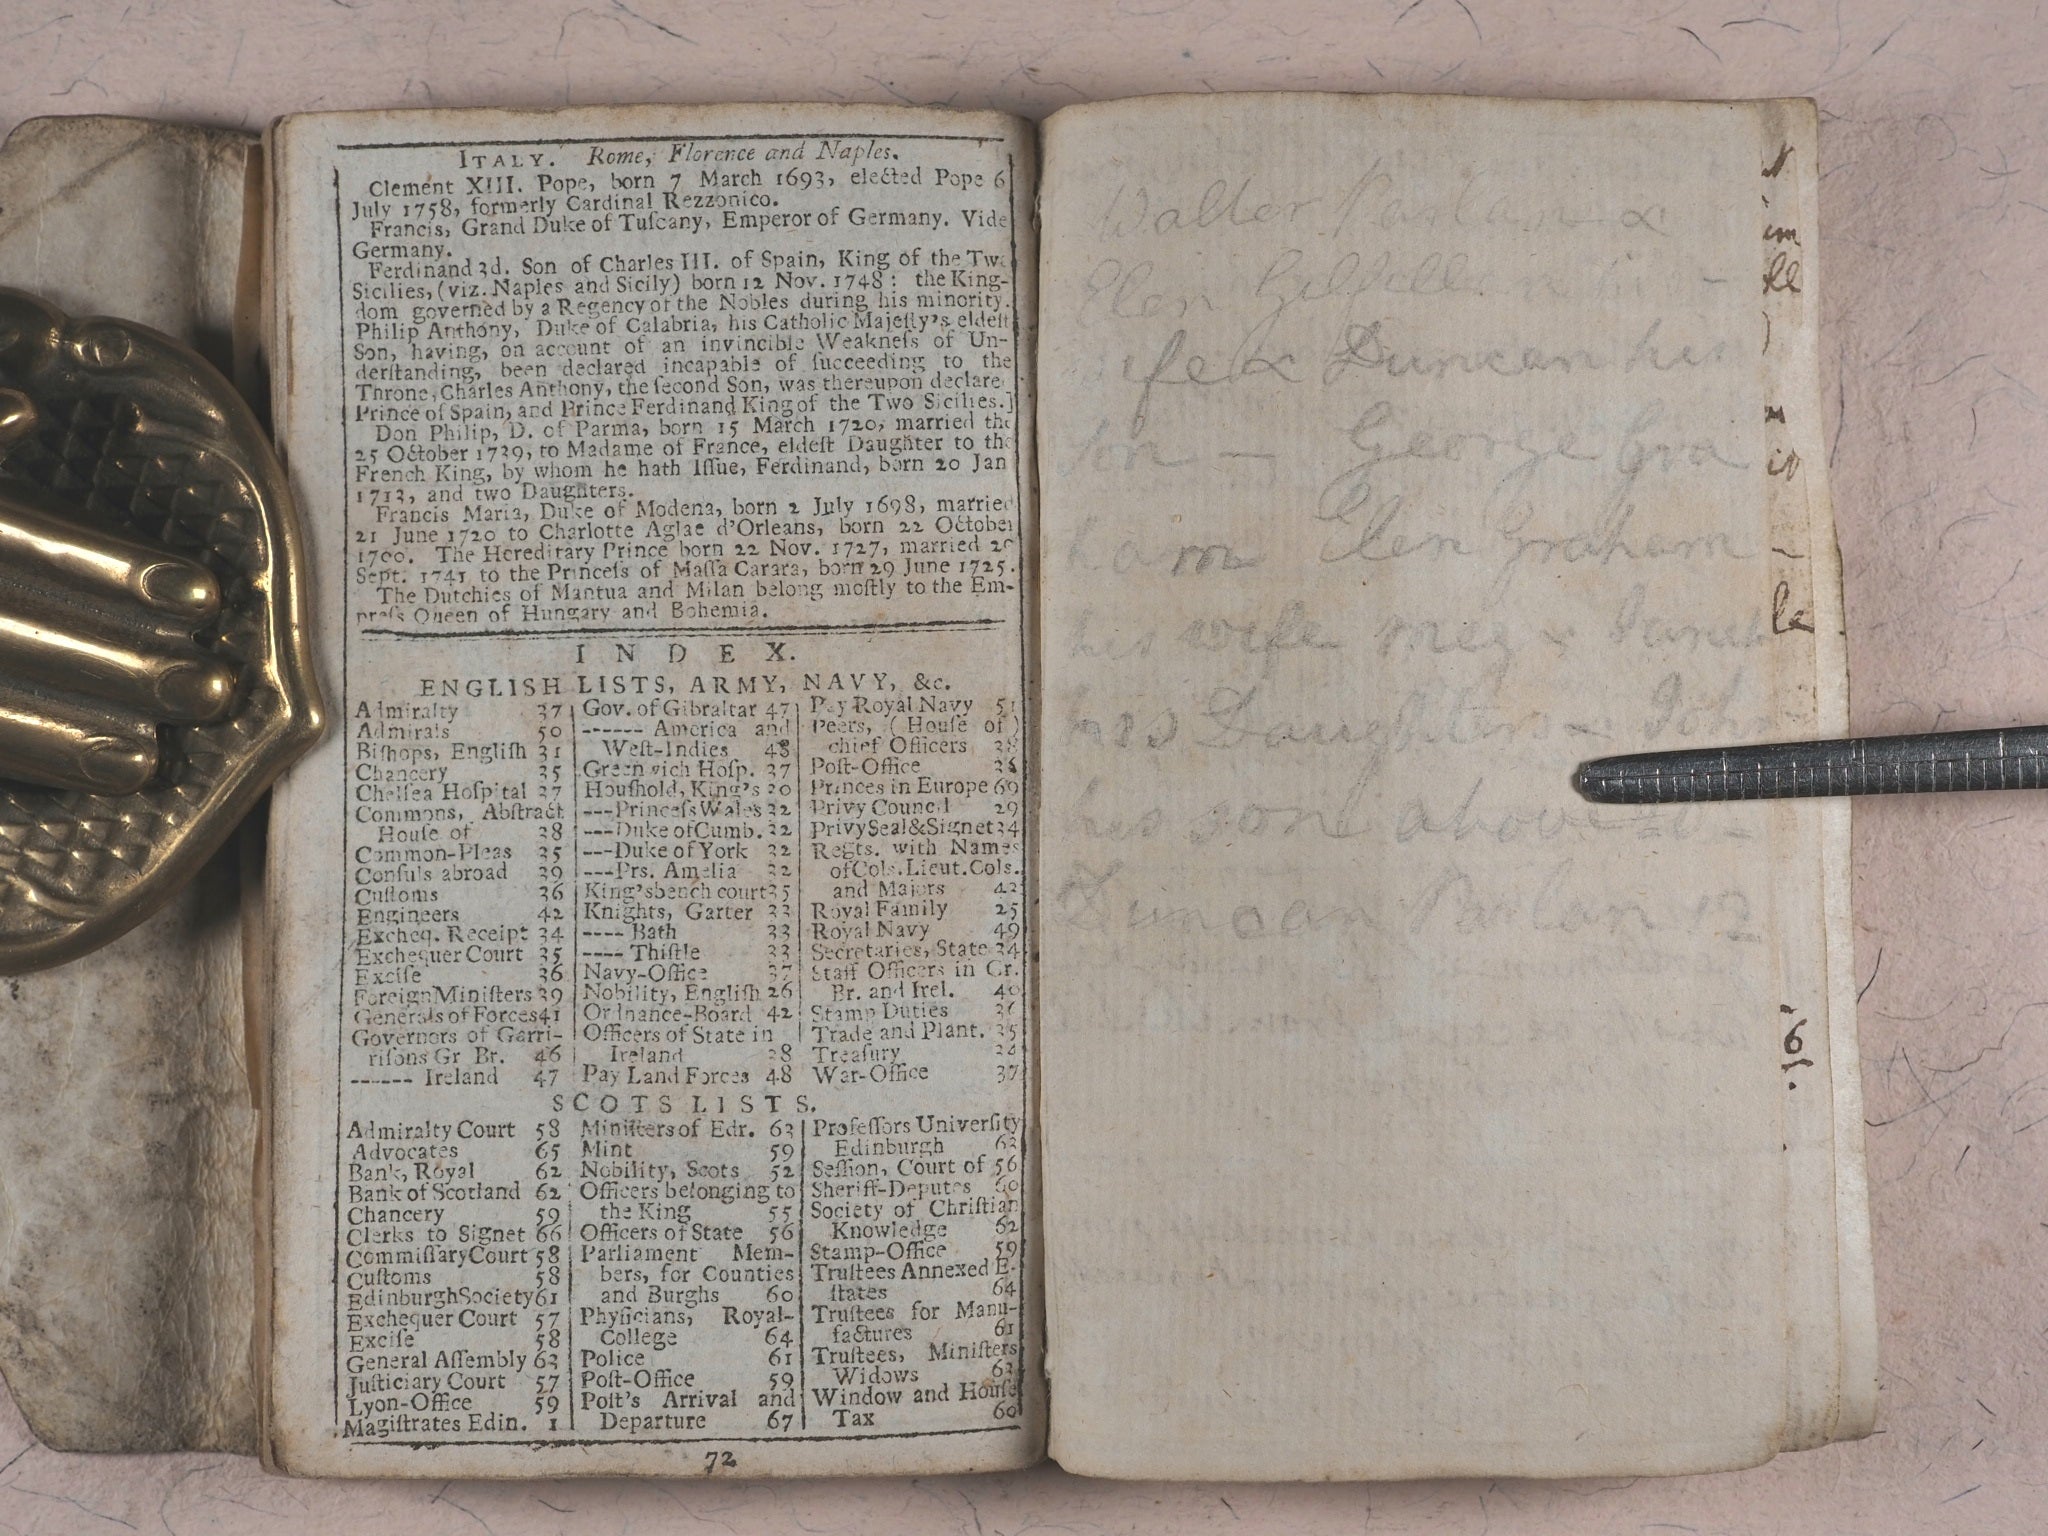 ITALY. Rome, Florence and Naples.
Clement XIII. Pope, born 7 March 1693, elected Pope 6
July 1758, formerly Cardinal Rezzonico.
Francis, Grand Duke of Tuſcany, Emperor of Germany. Vide
Germany.
Ferdinand 3d. Son of Charles III. of Spain, King of the Two
Sicilies, (viz. Naples and Sicily) born 12 Nov. 1748: the King-
dom governed by a Regency of the Nobles during his minority.
Philip Anthony, Duke of Calabria, his Catholic Majeſty's eldeſt
Son, having, on account of an invincible Weakneſs of Un-
derſtanding, been declared incapable of ſucceeding to the
Throne, Charles Anthony, the ſecond Son, was thereupon declared
Prince of Spain, and Prince Ferdinand King of the Two Sicilies.]
Don Philip, D. of Parma, born 15 March 1720, married the
25 October 1739, to Madame of France, eldeſt Daughter to the
French King, by whom he hath Iſſue, Ferdinand, born 20 Jan
and two Daughters.
Francis Maria, Duke of Modena, born 2 July 1698, married
21 June 1720 to Charlotte Aglae d'Orleans, born 22 October
1700. The Hereditary Prince born 22 Nov. 1727, married
Sept. 1741 to the Princeſs of Maſſa Carara, born 29 June 1725.
The Dutchies of Mantua and Milan belong moſtly to the Em-
preſs Queen of Hungary and Bohemia.
INDEX.
ENGLISH LISTS, ARMY, NAVY, &c.
Admiralty 37
Admirals 50
Biſhops, Engliſh 31
Chancery 35
Chelſea Hoſpital 37
Commons, Abſtract
Houſe of 38
Common-Pleas 35
Conſuls abroad 39
Cuſtoms 36
Engineers 42
Excheq. Receipt 34
Exchequer Court 35
Exciſe 36
Foreign Miniſters 39
Generals of Forces 41
Governors of Garri-
riſons Gr Br. 46
------ Ireland 47
Gov. of Gibraltar 47
------ America and
Weſt-Indies 48
Greenwich Hoſp. 37
Houſhold, King's 20
---Princeſs Wales 32
---Duke of Cumb. 32
---Duke of York 32
---Prs. Amelia 32
King'sbench court 35
Knights, Garter 33
---- Bath 33
---- Thiſtle 33
Navy-Office 37
Nobility, Engliſh 26
Ordnance-Board 42
Officers of State in
Ireland 38
Pay Land Forces 48
Pay Royal Navy 51
Peers, (Houſe of)
chief Officers 38
Poſt-Office 36
Princes in Europe 69
Privy Council 29
Privy Seal & Signet 34
Regts. with Names
of Cols. Lieut. Cols.
and Majors 42
Royal Family 25
Royal Navy 49
Secretaries, State 34
Staff Officers in Gr.
Br. and Irel. 40
Stamp Duties 36
Trade and Plant. 35
Treaſury 34
War-Office 37
SCOTS LISTS.
Admiralty Court 58
Advocates 65
Bank, Royal 62
Bank of Scotland 62
Chancery 59
Clerks to Signet 66
Commiſſary Court 58
Cuſtoms 58
Edinburgh Society 61
Exchequer Court 57
Exciſe 58
General Aſſembly 63
Juſticiary Court 57
Lyon-Office 59
Magiſtrates Edin. 1
Miniſters of Edr. 63
Mint 59
Nobility, Scots 52
Officers belonging to
the King 55
Officers of State 56
Parliament Mem-
bers, for Counties
and Burghs 60
Phyſicians, Royal-
College 64
Police 61
Poſt-Office 59
Poſt's Arrival and
Departure 67
Profeſſors Univerſity
Edinburgh 63
Seſſion, Court of 56
Sheriff-Deputes 60
Society of Chriſtian
Knowledge 62
Stamp-Office 59
Truſtees Annexed E-
ſtates 64
Truſtees for Manu-
factures 61
Truſtees, Miniſters
Widows 63
Window and Houſe
Tax 60
72
Walter Parlan &
Elen
wife & Duncan his
son — George Gra
ham Elen Graham
his wife meg & Janet
his Daughters & John
his sone above
Duncan Parlan
le
6